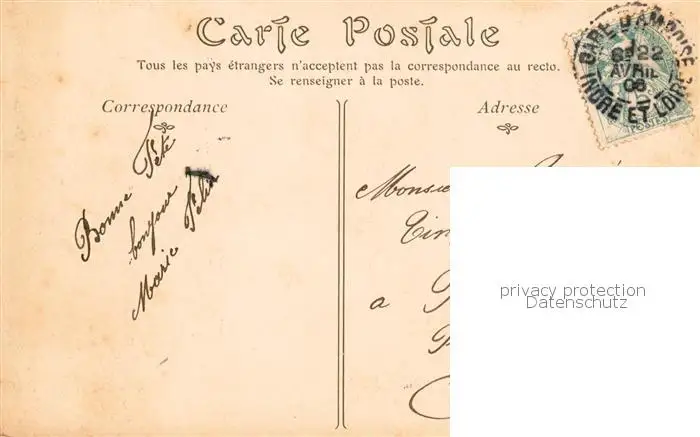 Carte Postale
Tous les pays étrangers n'acceptent pas la correspondance au recto.
Se renseigner à la poste.
Correspondance
Adresse
GARE D'AMBOISE
22
AVRIL
08
INDRE ET LOIRE
POSTES
Bonne Fête
bonjour
Marie
Monsie
Tim
a
privacy protection
Datenschutz